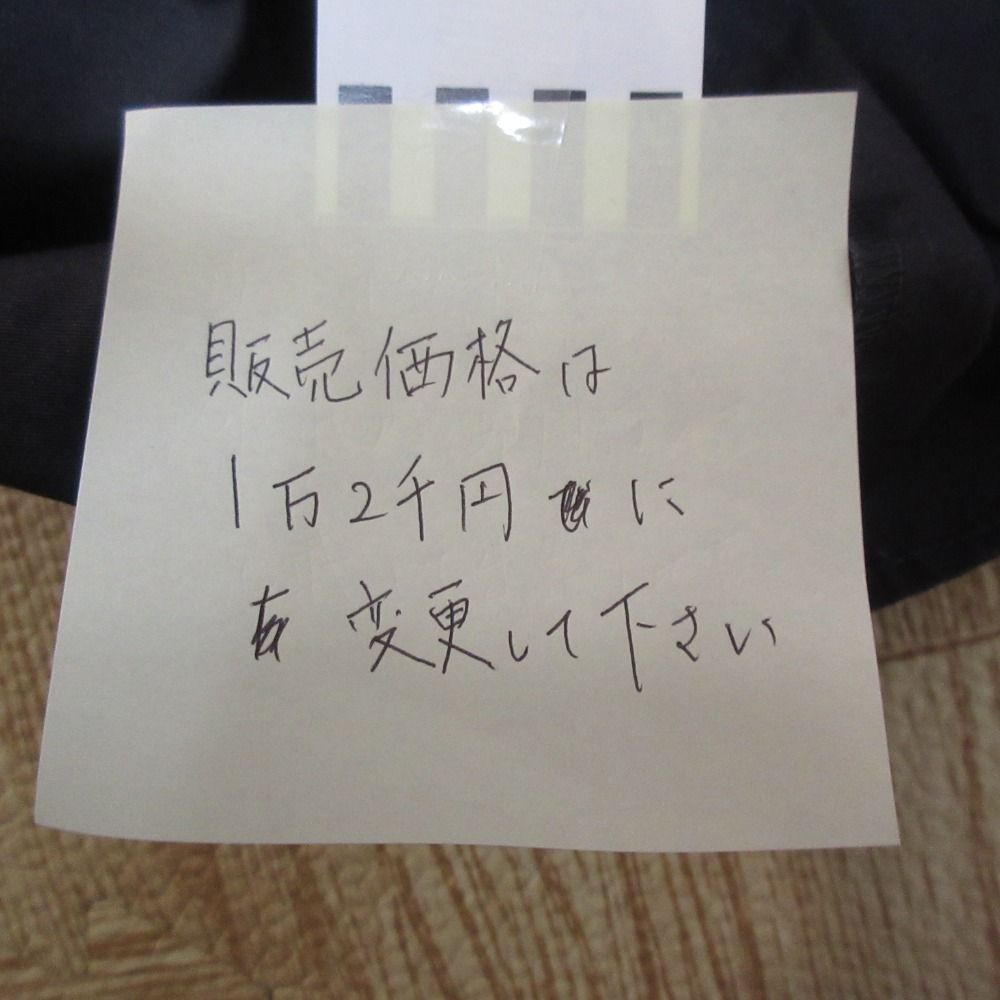 販売価格は
1万2千円に
変更して下さい